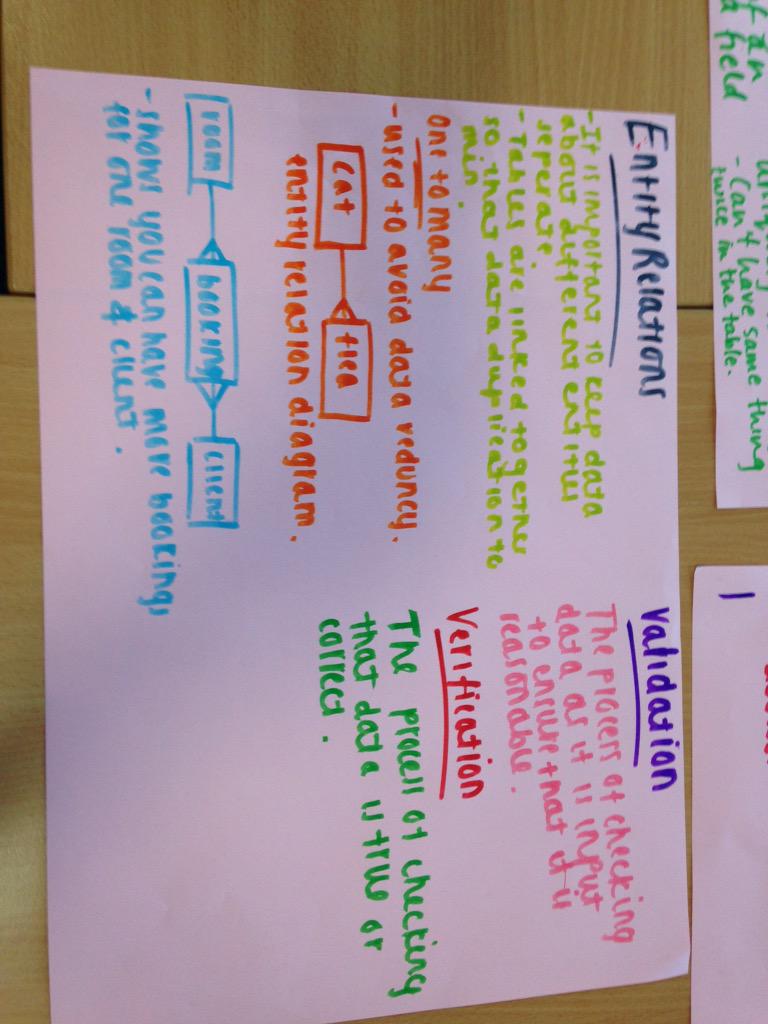 Entity Relations
- It is important to keep data
about different entities
seperate.
- Tables are linked together
so that data duplication to
min.
one to many
- used to avoid data reduncy.
cat
flea
entity relation diagram.
room
booking
client
- shows you can have more bookings
for one room & client.
Validation
The process of checking
data as it is input
to ensure that it is
reasonable.
Verification
The process of checking
that data is true or
correct.
field
- Can't have same thing
twice in the table.